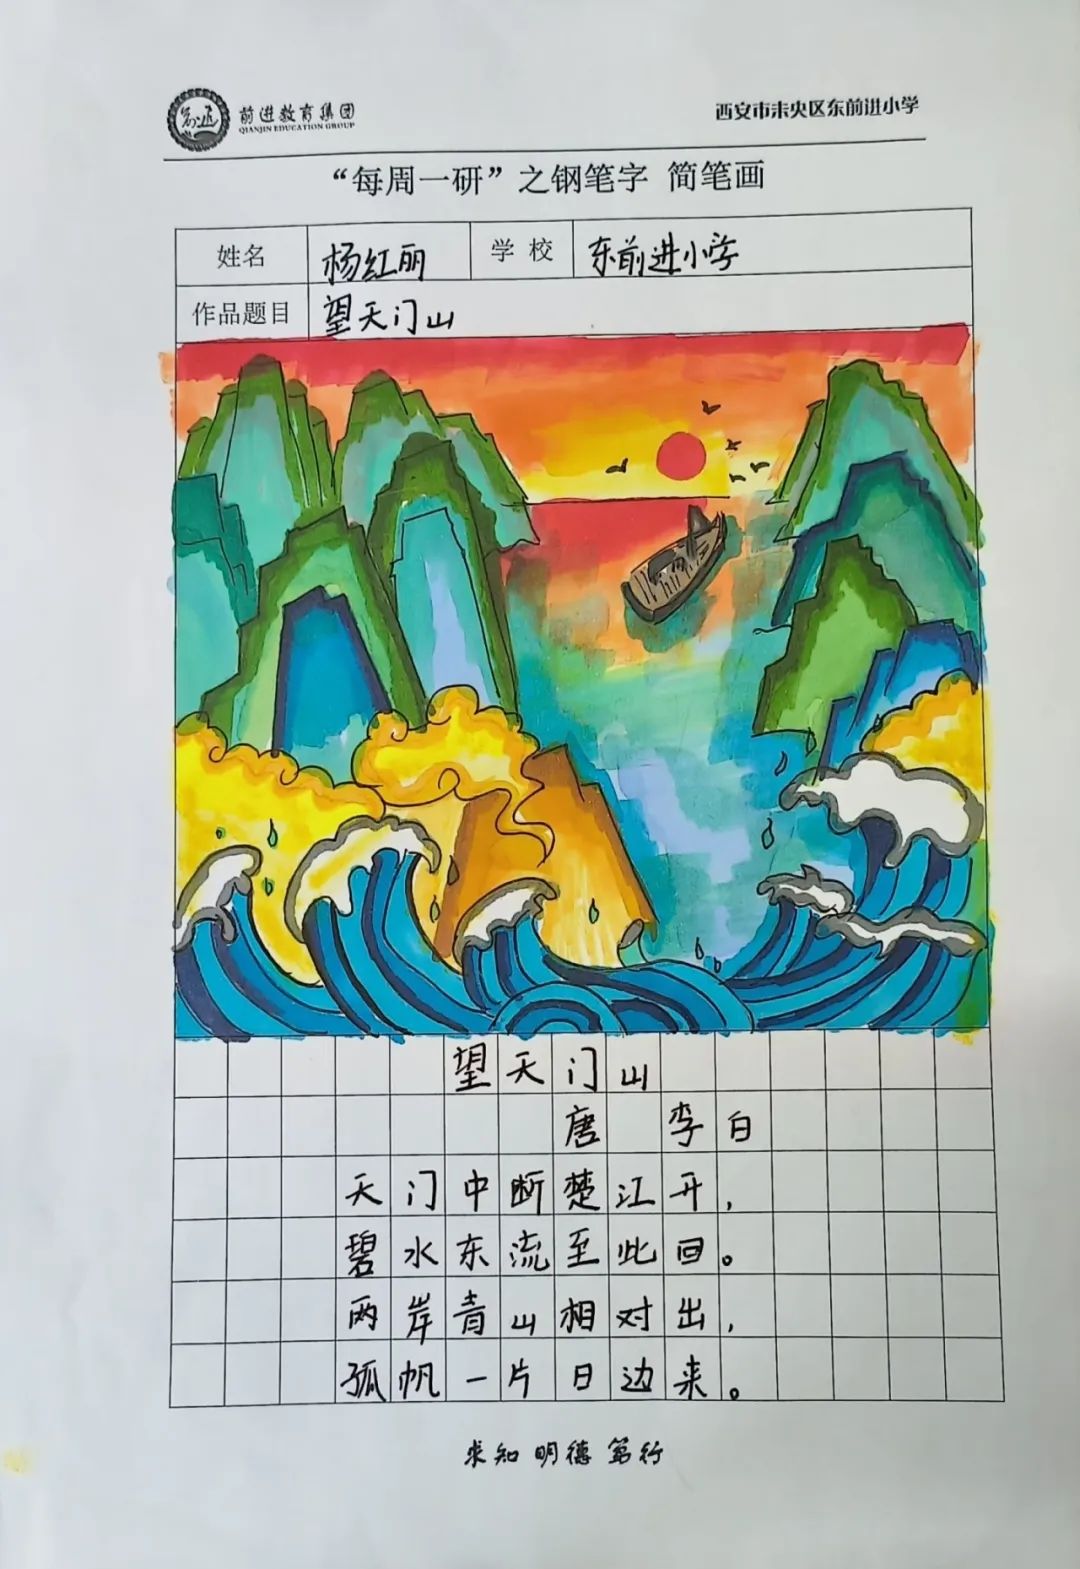 前进教育集团
QIANJIN EDUCATION GROUP
西安市未央区东前进小学
“每周一研”之钢笔字 简笔画
姓名 杨红丽 学校 东前进小学
作品题目 望天门山
望天门山
唐 李白
天门中断楚江开,
碧水东流至此回。
两岸青山相对出,
孤帆一片日边来。
求知 明德 笃行